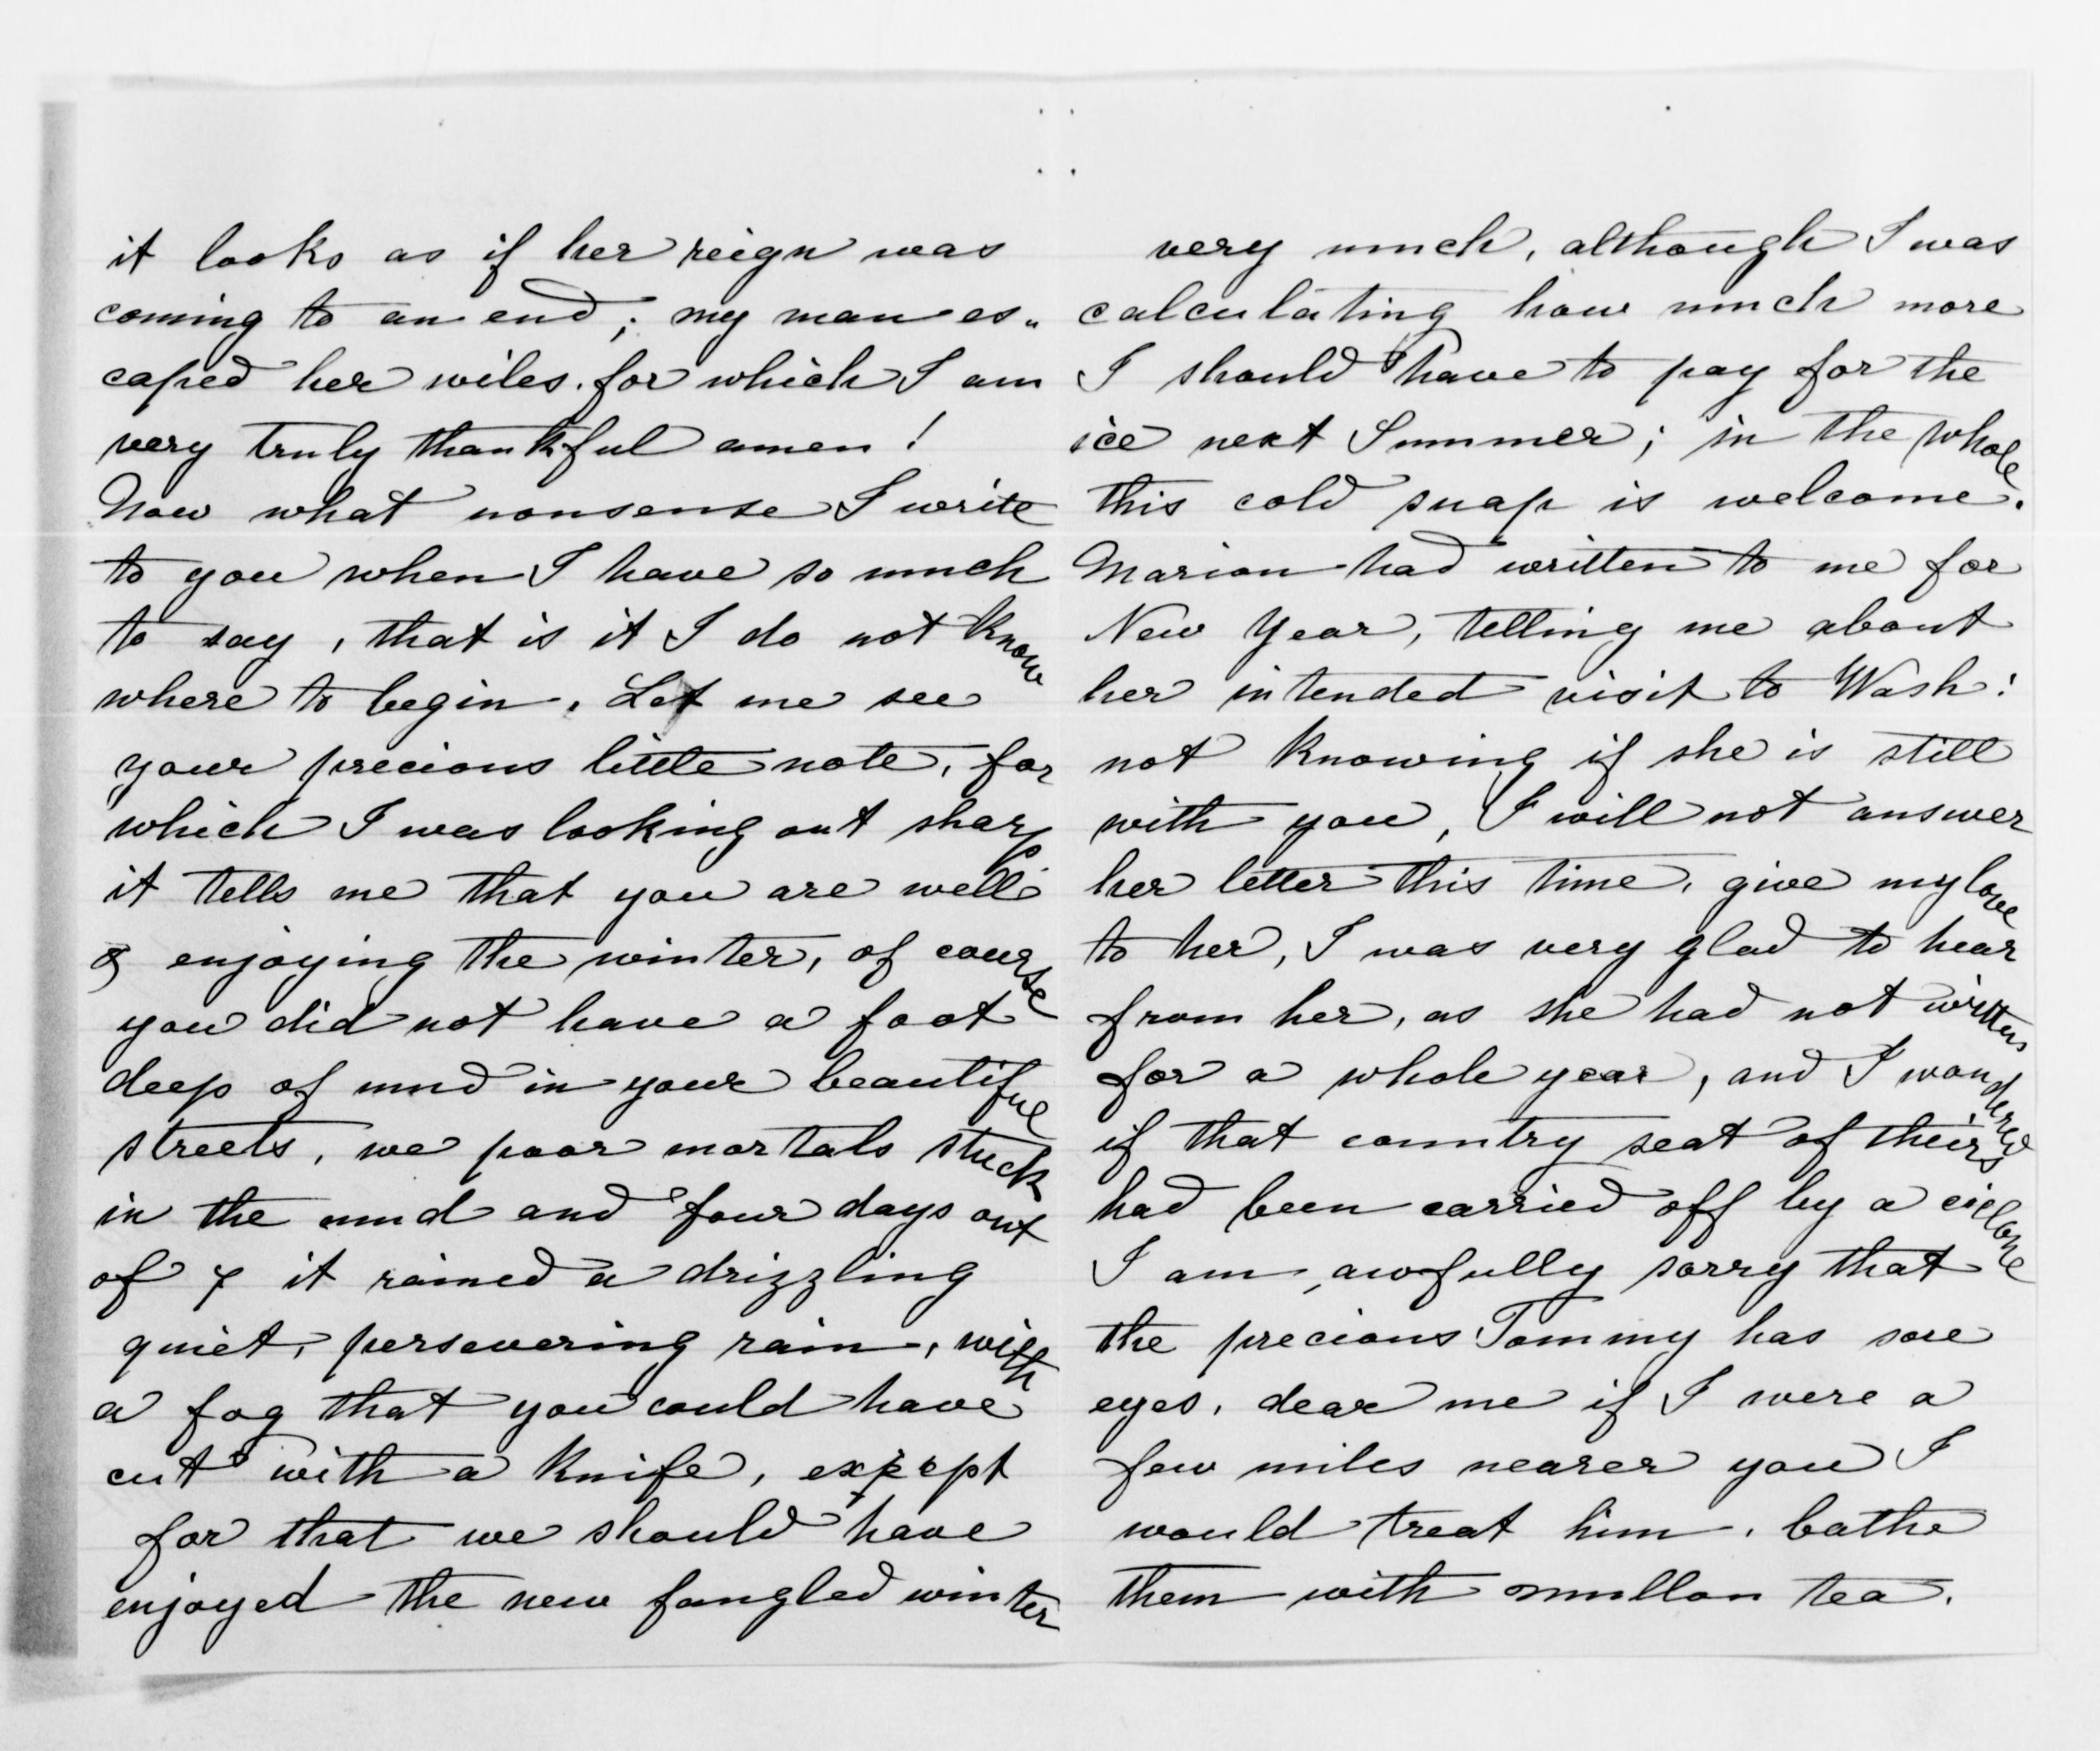 it looks as if her reign was
coming to an end; my man es„
caped her wiles. for which I am
very truly thankful amen!
Now what nonsense I write
to you when I have so much
to say, that is it I do not know
where to begin. Let me see
your precious little note, for
which I was looking out sharp
it tells me that you are well
& enjoying the winter, of course
you did not have a foot
deep of mud in your beautiful
streets, we poor mortals stuck
in the mud and four days out
of 7 it rained a drizzling
quiet, persevering rain, with
a fog that you could have
cut with a knife, except
for that we should have
enjoyed the new fangled winter
very much, although I was
calculating how much more
I should have to pay for the
ice next Summer; in the whole
this cold snap is welcome.
Marion had written to me for
New Year, telling me about
her intended visit to Wash:
not knowing if she is still
with you, I will not answer
her letter this time, give my love
to her, I was very glad to hear
from her, as she had not written
for a whole year, and I wondered
if that country seat of theirs
had been carried off by a ciclone
I am awfully sorry that
the precious Tommy has sore
eyes, dear me if I were a
few miles nearer you I
would treat him. bathe
them with mullon tea.